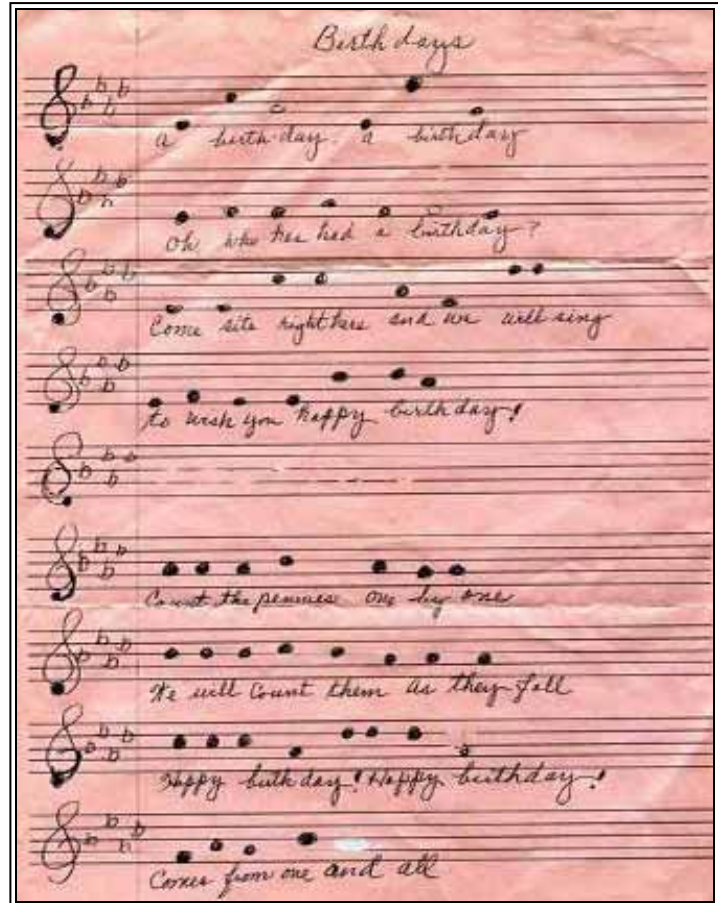 Birthdays
a birth-day. a birthday
Oh who has had a birthday?
Come sit right here and we will sing
to wish you happy birthday!
Count the pennies one by one
We will Count them as they fall
Happy birthday! Happy birthday!
Comes from one and all